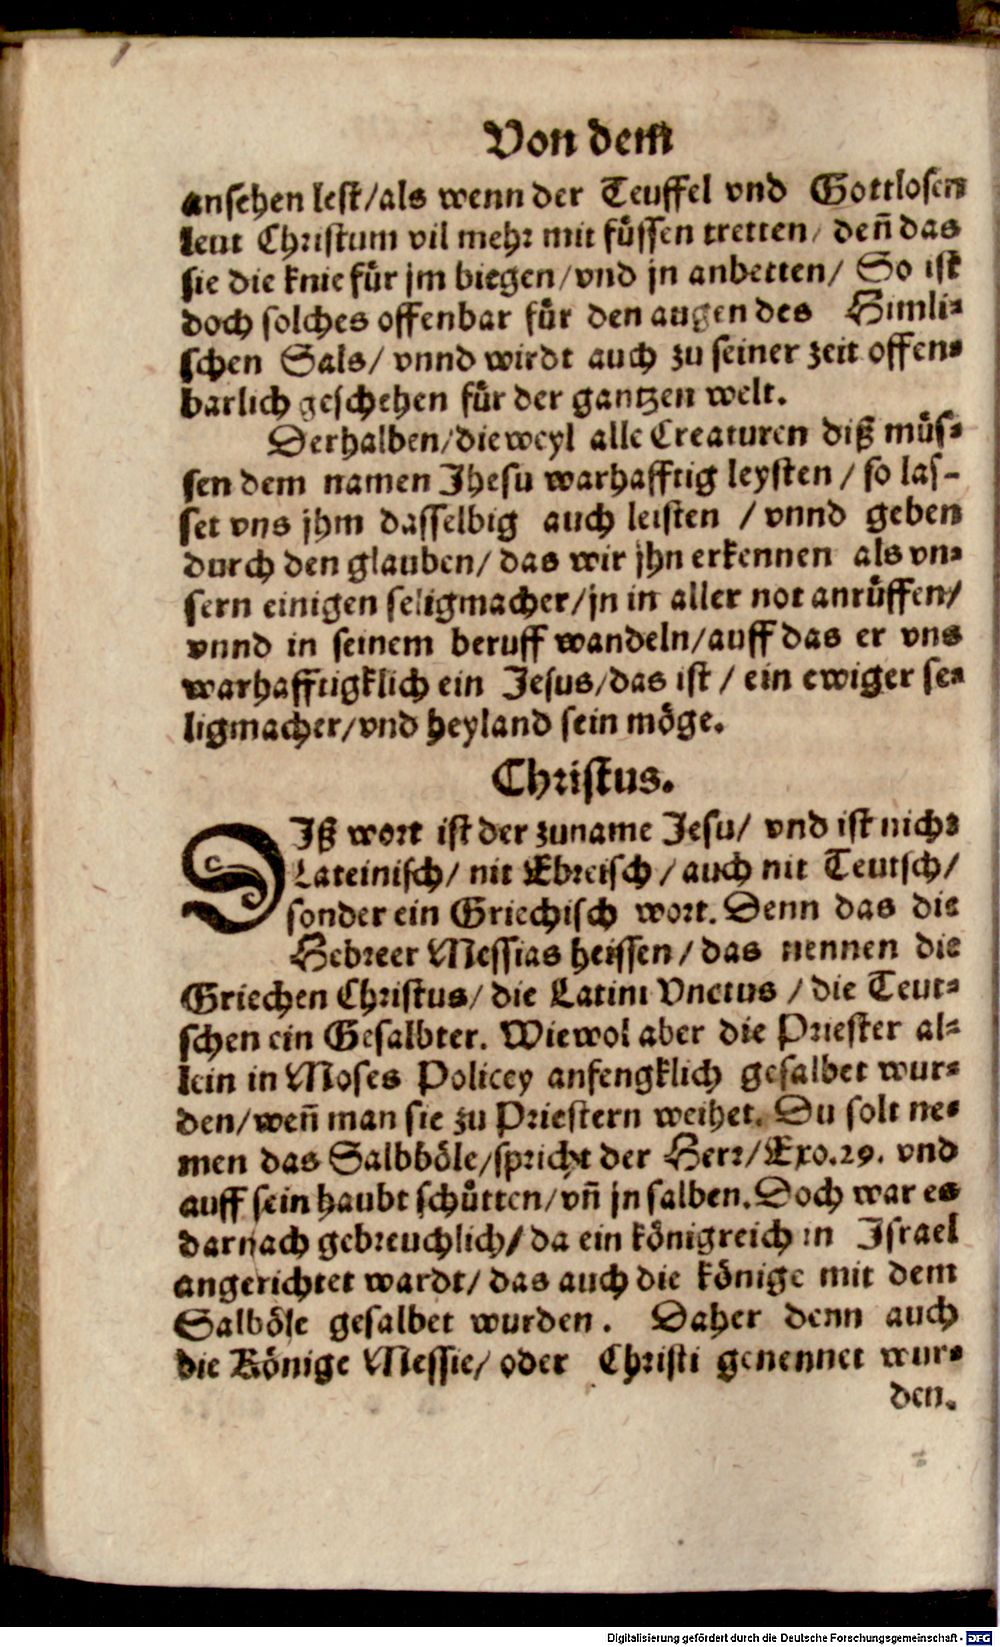 Von dem
ansehen lest/als wenn der Teuffel vnd Gottlosen
leut Christum vil mehr mit füssen tretten/ deñ das
sie die knie für jm biegen/vnd jn anbetten/ So ist
doch solches offenbar für den augen des Himli-
schen Sals/ vnnd wirdt auch zu seiner zeit offen-
barlich geschehen für der gantzen welt.
Derhalben/dieweyl alle Creaturen diß müs-
sen dem namen Jhesu warhafftig leysten / so las-
set vns jhm dasselbig auch leisten / vnnd geben
durch den glauben/ das wir jhn erkennen als vn-
sern einigen seligmacher/jn in aller not anrüffen/
vnnd in seinem beruff wandeln/auff das er vns
warhafftigklich ein Jesus/das ist / ein ewiger se-
ligmacher/vnd heyland sein möge.
Christus.
DIß wort ist der zuname Jesu/ vnd ist nicht
Lateinisch/ nit Ebreisch / auch nit Teutsch/
sonder ein Griechisch wort. Denn das die
Hebreer Messias heissen / das nennen die
Griechen Christus/ die Latini Vnctus / die Teut-
schen ein Gesalbter. Wiewol aber die Priester al-
lein in Moses Policey anfengklich gesalbet wur-
den/weñ man sie zu Priestern weihet. Du solt ne-
men das Salbböle/spricht der Herr/Exo.29. vnd
auff sein haubt schütten/vñ jn salben. Doch war es
darnach gebreuchlich/ da ein königreich in Israel
angerichtet wardt/ das auch die könige mit dem
Salböle gesalbet wurden. Daher denn auch
die Könige Messie/ oder Christi genennet wur-
den.
Digitalisierung gefördert durch die Deutsche Forschungsgemeinschaft - DFG